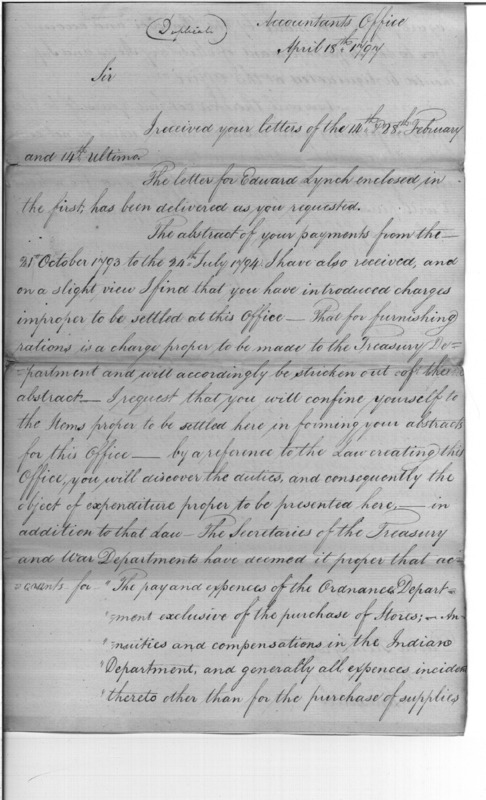 (Duplicate)
Accountants Office
April 18th 1797
Sir
I received your letters of the 14th & 28th February
and 14th Ultimo
The letter for Edward Lynch enclosed in
the first, has been delivered as you requested.
The abstract of your payments from the
31st October 1793 to the 24th July 1794 I have also received, and
on a slight view I find that you have introduced charges
improper to be settled at this Office — That for furnishing
rations is a charge proper to be made to the Treasury De=
=partment and will accordingly be stricken out of the
abstract — I request that you will confine yourself to
the Items proper to be settled here in forming your abstracts
for this Office — by a reference to the Law creating this
Office, you will discover the duties, and consequently the
object of expenditure proper to be presented here, — in
addition to that Law — The Secretaries of the Treasury
and War Departments have deemed it proper that ac=
=counts for "The pay and expences of the Ordnance Depart=
"=ment exclusive of the purchase of Stores; — An=
"=nuities and compensations in the Indian
"Department, and generally all expences incident
"thereto other than for the purchase of supplies